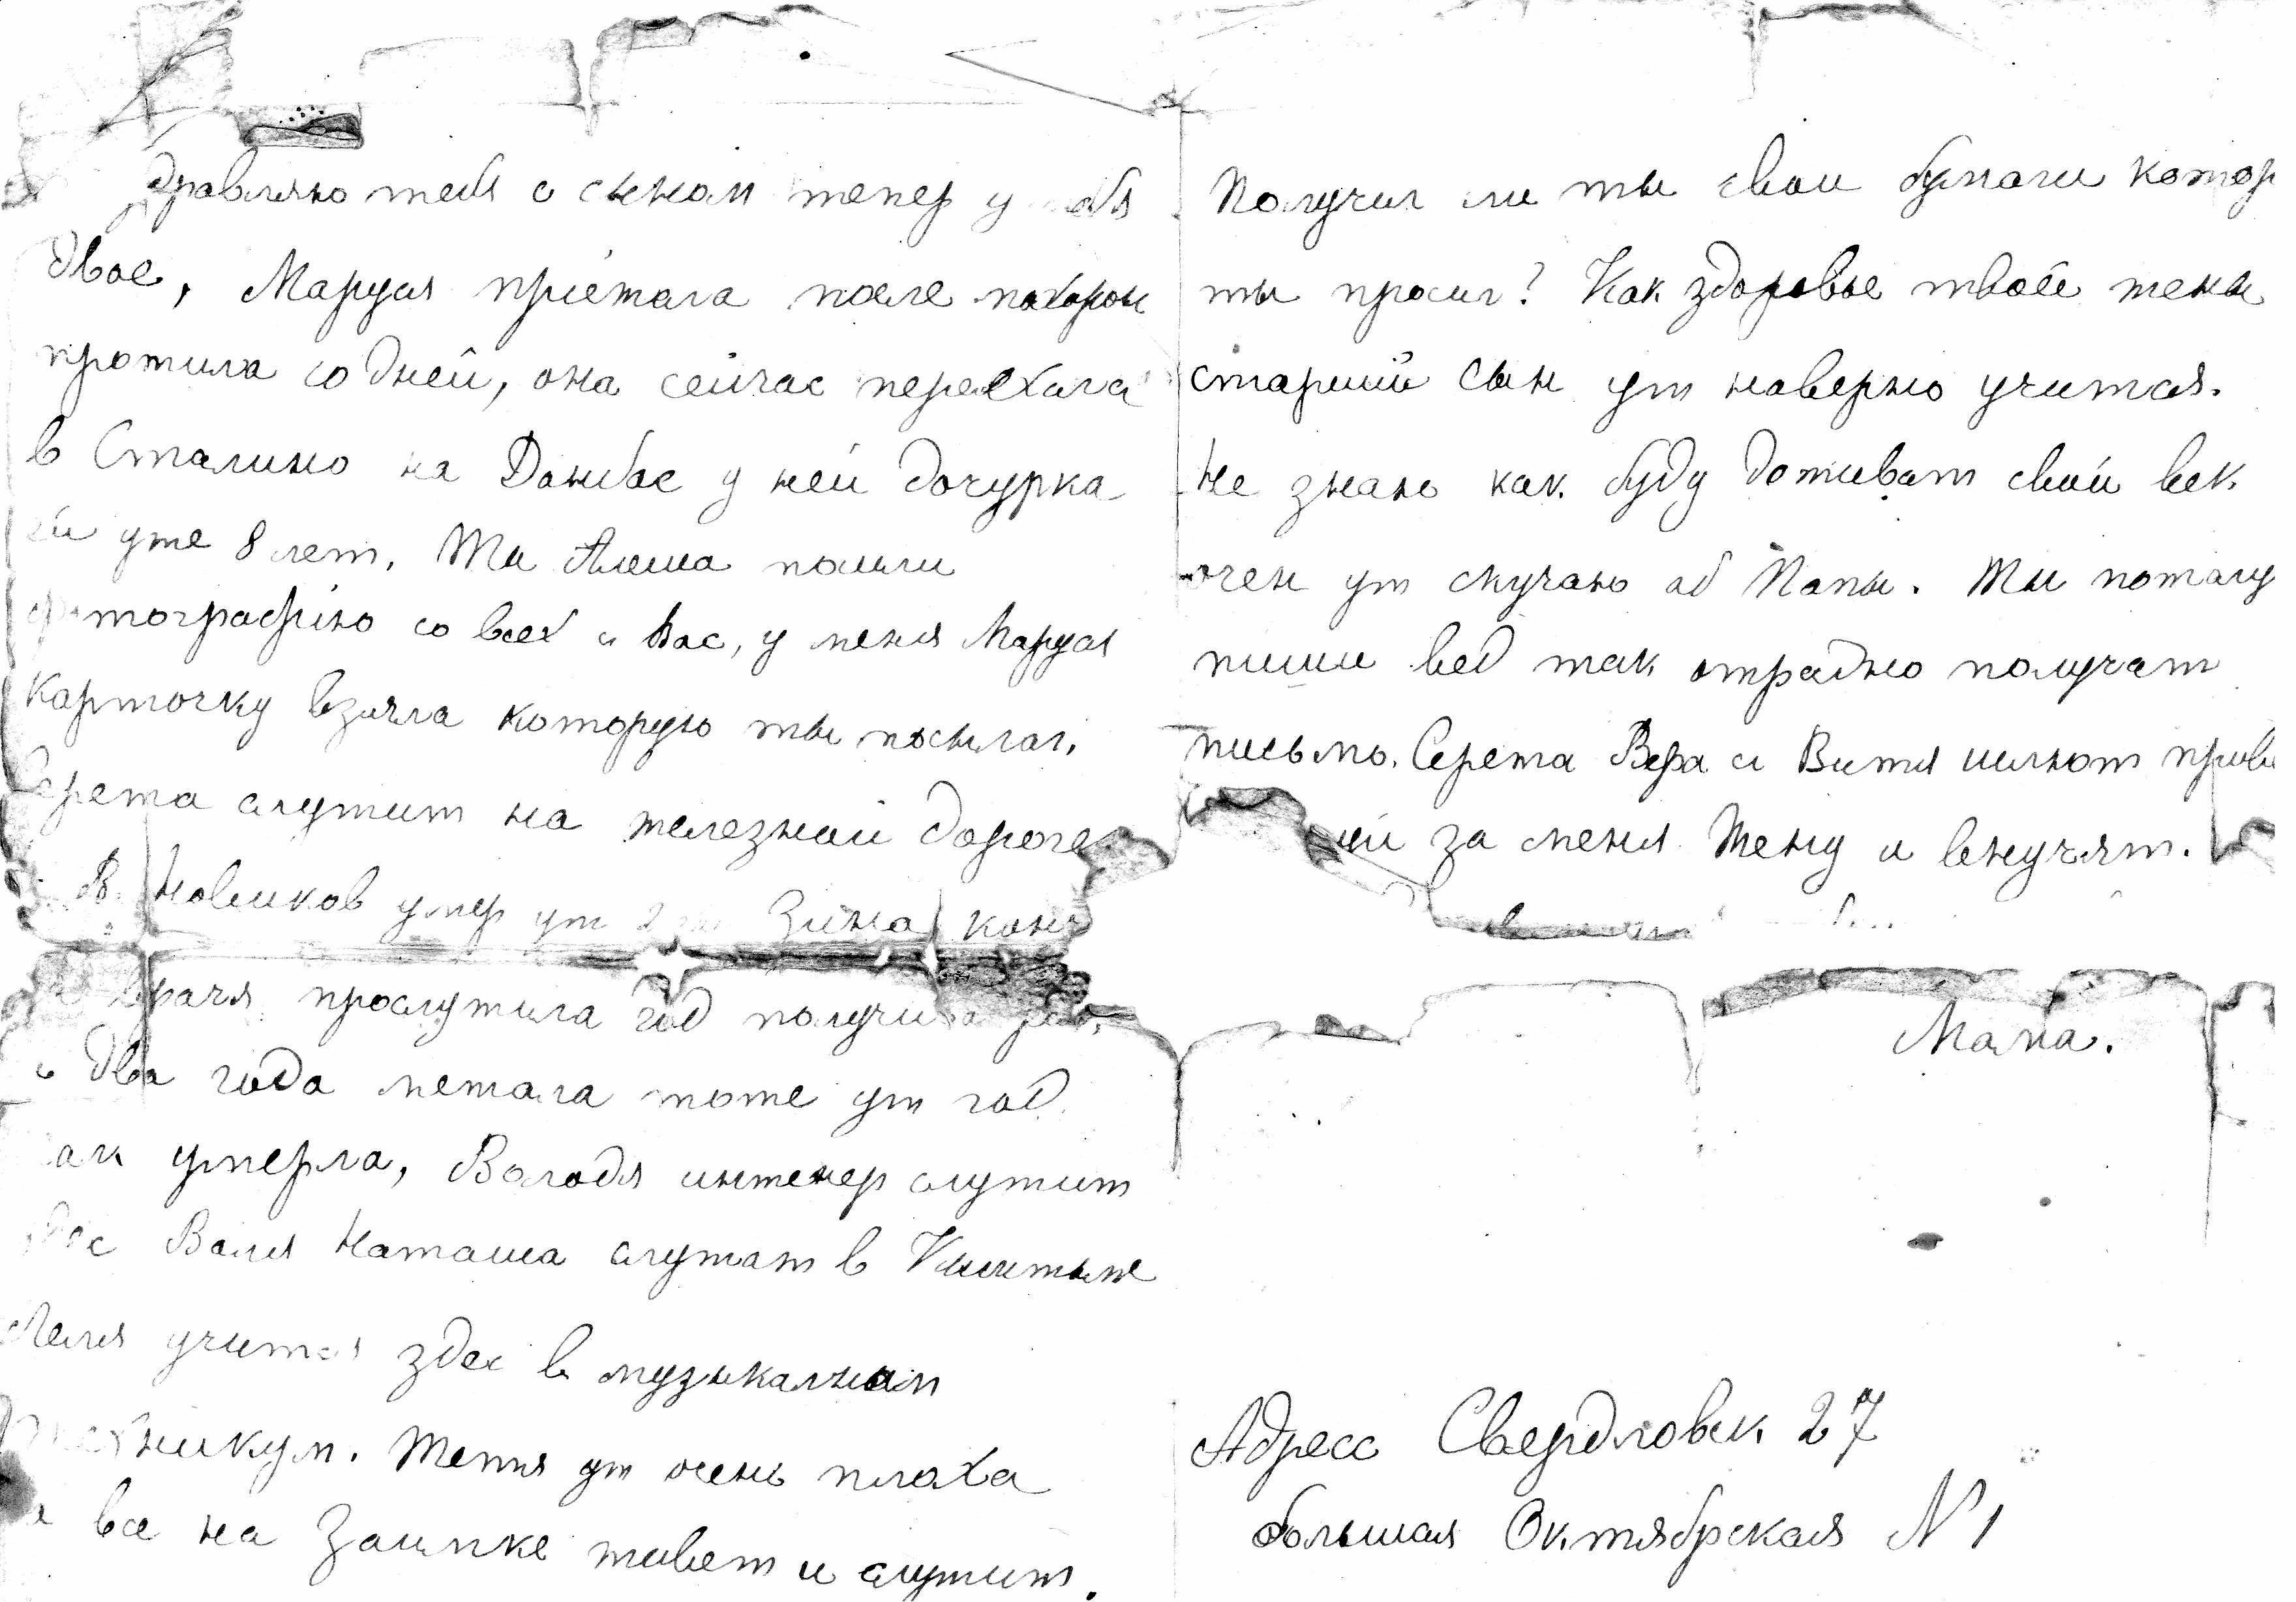 дравляю тебя с сыном тепер у
двое, Маруся приежала после похорон
прожила 10 дней, она сейчас переехала
в Сталино на Донбас у ней дочурка
ей уже 8 лет. Ты Алеша пошли
фотографию со всех с Вас, у меня Маруся
карточку взяла которую ты посылал.
Сережа служит на железной дороге
В. Новиков умер уж 2 Зина
врача прослужила год получила
два года лежала тоже уж год
как умерла, Володя инженер служит
Валя Наташа служат в Кыштыме
Леля учится здес в музыкалном
техникум. Женя уж очень плоха
все на Заимке живет и служит.
Получил ли ты свои бумаги котор
ты просил? Как здоровье твоей жены
старший сын уж наверно учится.
Не знаю как буду доживат свой век
очен уж скучаю об Папы. Ты пожалу
пиши вед так отрадно получат
письмо. Сережа Вера и Витя шлют приве
уй за меня Жену и внучят.
Мама.
Адресс Свердловск 27
большая Октябрская N 1